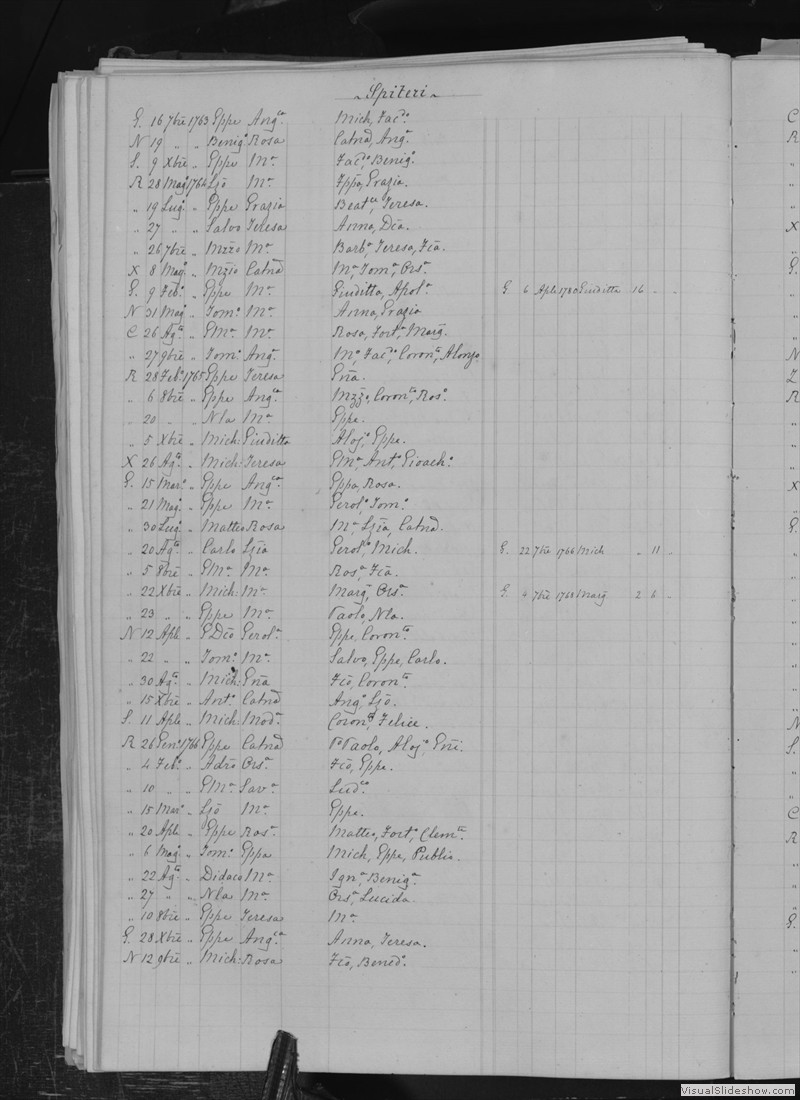 Spiteri
G. 16 7bre 1763 Gppe Angca Mich, Faco
N 19 " " Benigo Rosa Catnd, Anga
S. 9 Xbre " Gppe Ma Faco Benigo
R 28 Mago 1764 Ljō Ma Gppa, Grazia.
" 19 Lug. " Gppe Grazia Beatce, Teresa.
" 27 " " Salvo Teresa Anna, Dca.
" 26 7bre " Mzzo Ma Barba, Teresa, Fca.
X 8 Mago " Mzio Catnd Ma, Toma, Orsa
G. 9 Febo " Gppe Ma Giuditta, Apola G. 6 Aple 1780 Giuditta 16 " "
N 31 Mago " Tomo Ma Anna, Grazia
C 26 Agto " GMa Ma Rosa, Forta, Marg.
" 27 9bre " Tomo Anga Mo, Faco, Coronto, Alonzo
R 28 Febo 1765 Gppe Teresa Gna.
" 6 8bre " Gppe Angca Mzzo, Coronta, Roso
" 20 " " Nla Ma Gppe.
" 5 Xbre " Mich: Giuditta Aloja, Gppe.
X 26 Agto " Mich: Teresa GMa, Anta, Gioacho
G. 15 Maro " Gppe Angca Gppa, Rosa.
" 21 Mago " Gppe Ma Gerolo, Tomo
" 30 Lug. " Matteo Rosa Ma, Ljia, Catnd.
" 20 Agto " Carlo Ljia Gerolo, Mich. G. 22 7bre 1766 Mich " 11 "
" 5 8bre " GMa Ma Rosa, Fca.
" 22 Xbre " Mich: Ma Marg, Orsa G. 4 7bre 1768 Marg 2 6 "
" 23 " " Gppe Ma Paolo, Nla.
N 12 Aple " GDco Gerola Gppe, Coronta
" 22 " " Tomo Ma Salvo, Gppe, Carlo.
" 30 Agto " Mich: Gna Fco, Coronta
" 15 Xbre " Anto Catnd Ango, Ljō.
S. 11 Aple " Mich: Moda Coronto, Felice.
R 26 Geno 1766 Gppe Catnd Paolo, Aloja, Gni.
" 4 Febo " Adro Orsa Fco, Gppe.
" 10 " " GMa Sava Ludco
" 15 Maro " Ljō Ma Gppe.
" 20 Aple " Gppe Rosa Matteo, Forto, Clemta
" 6 Mago " Tomo Gppa Mich, Gppe, Publia.
" 22 Agto " Didaco Ma Igna, Beniga
" 27 " " Nla Ma Orsa, Lucida
" 10 8bre " Gppe Teresa Ma
G. 28 Xbre " Gppe Angca Anna, Teresa.
N 12 9bre " Mich: Rosa Fco, Benedo
VisualSlideshow.com